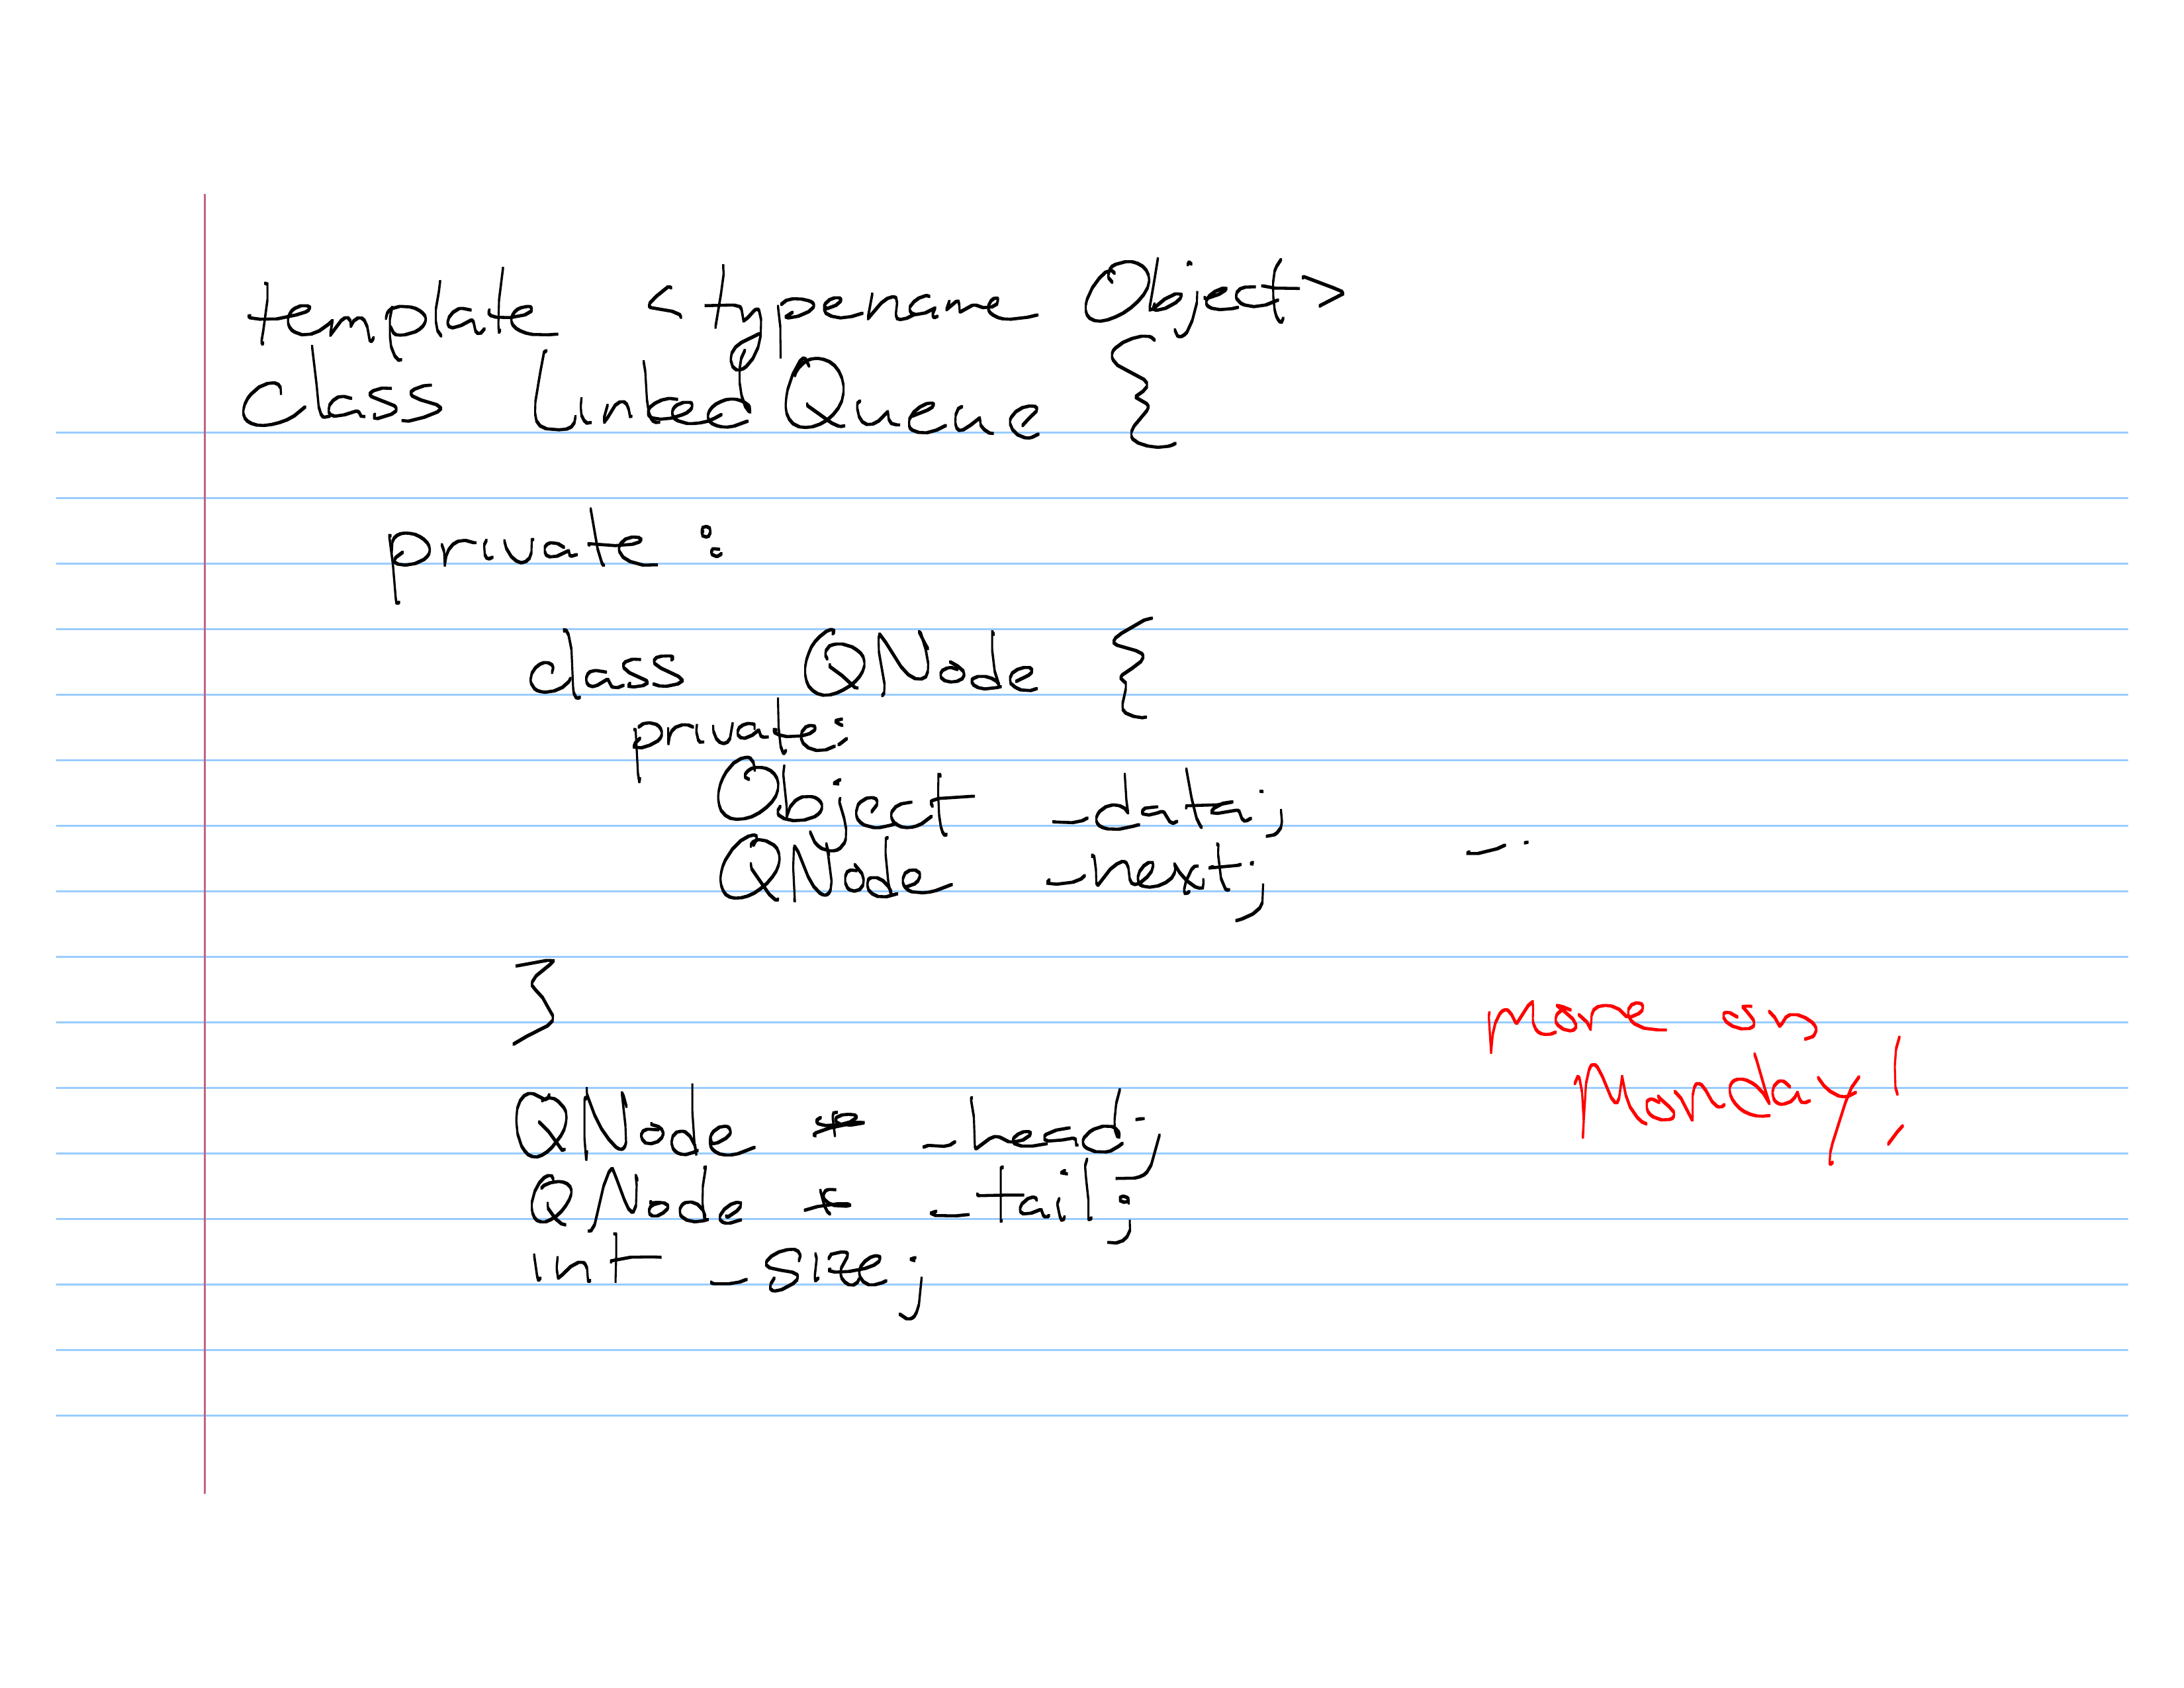 template <typename Object>
class LinkedQueue {
private:
class QNode {
private:
Object _data;
QNode _next;
}
QNode * _head;
QNode * _tail;
int _size;
more on
Monday!